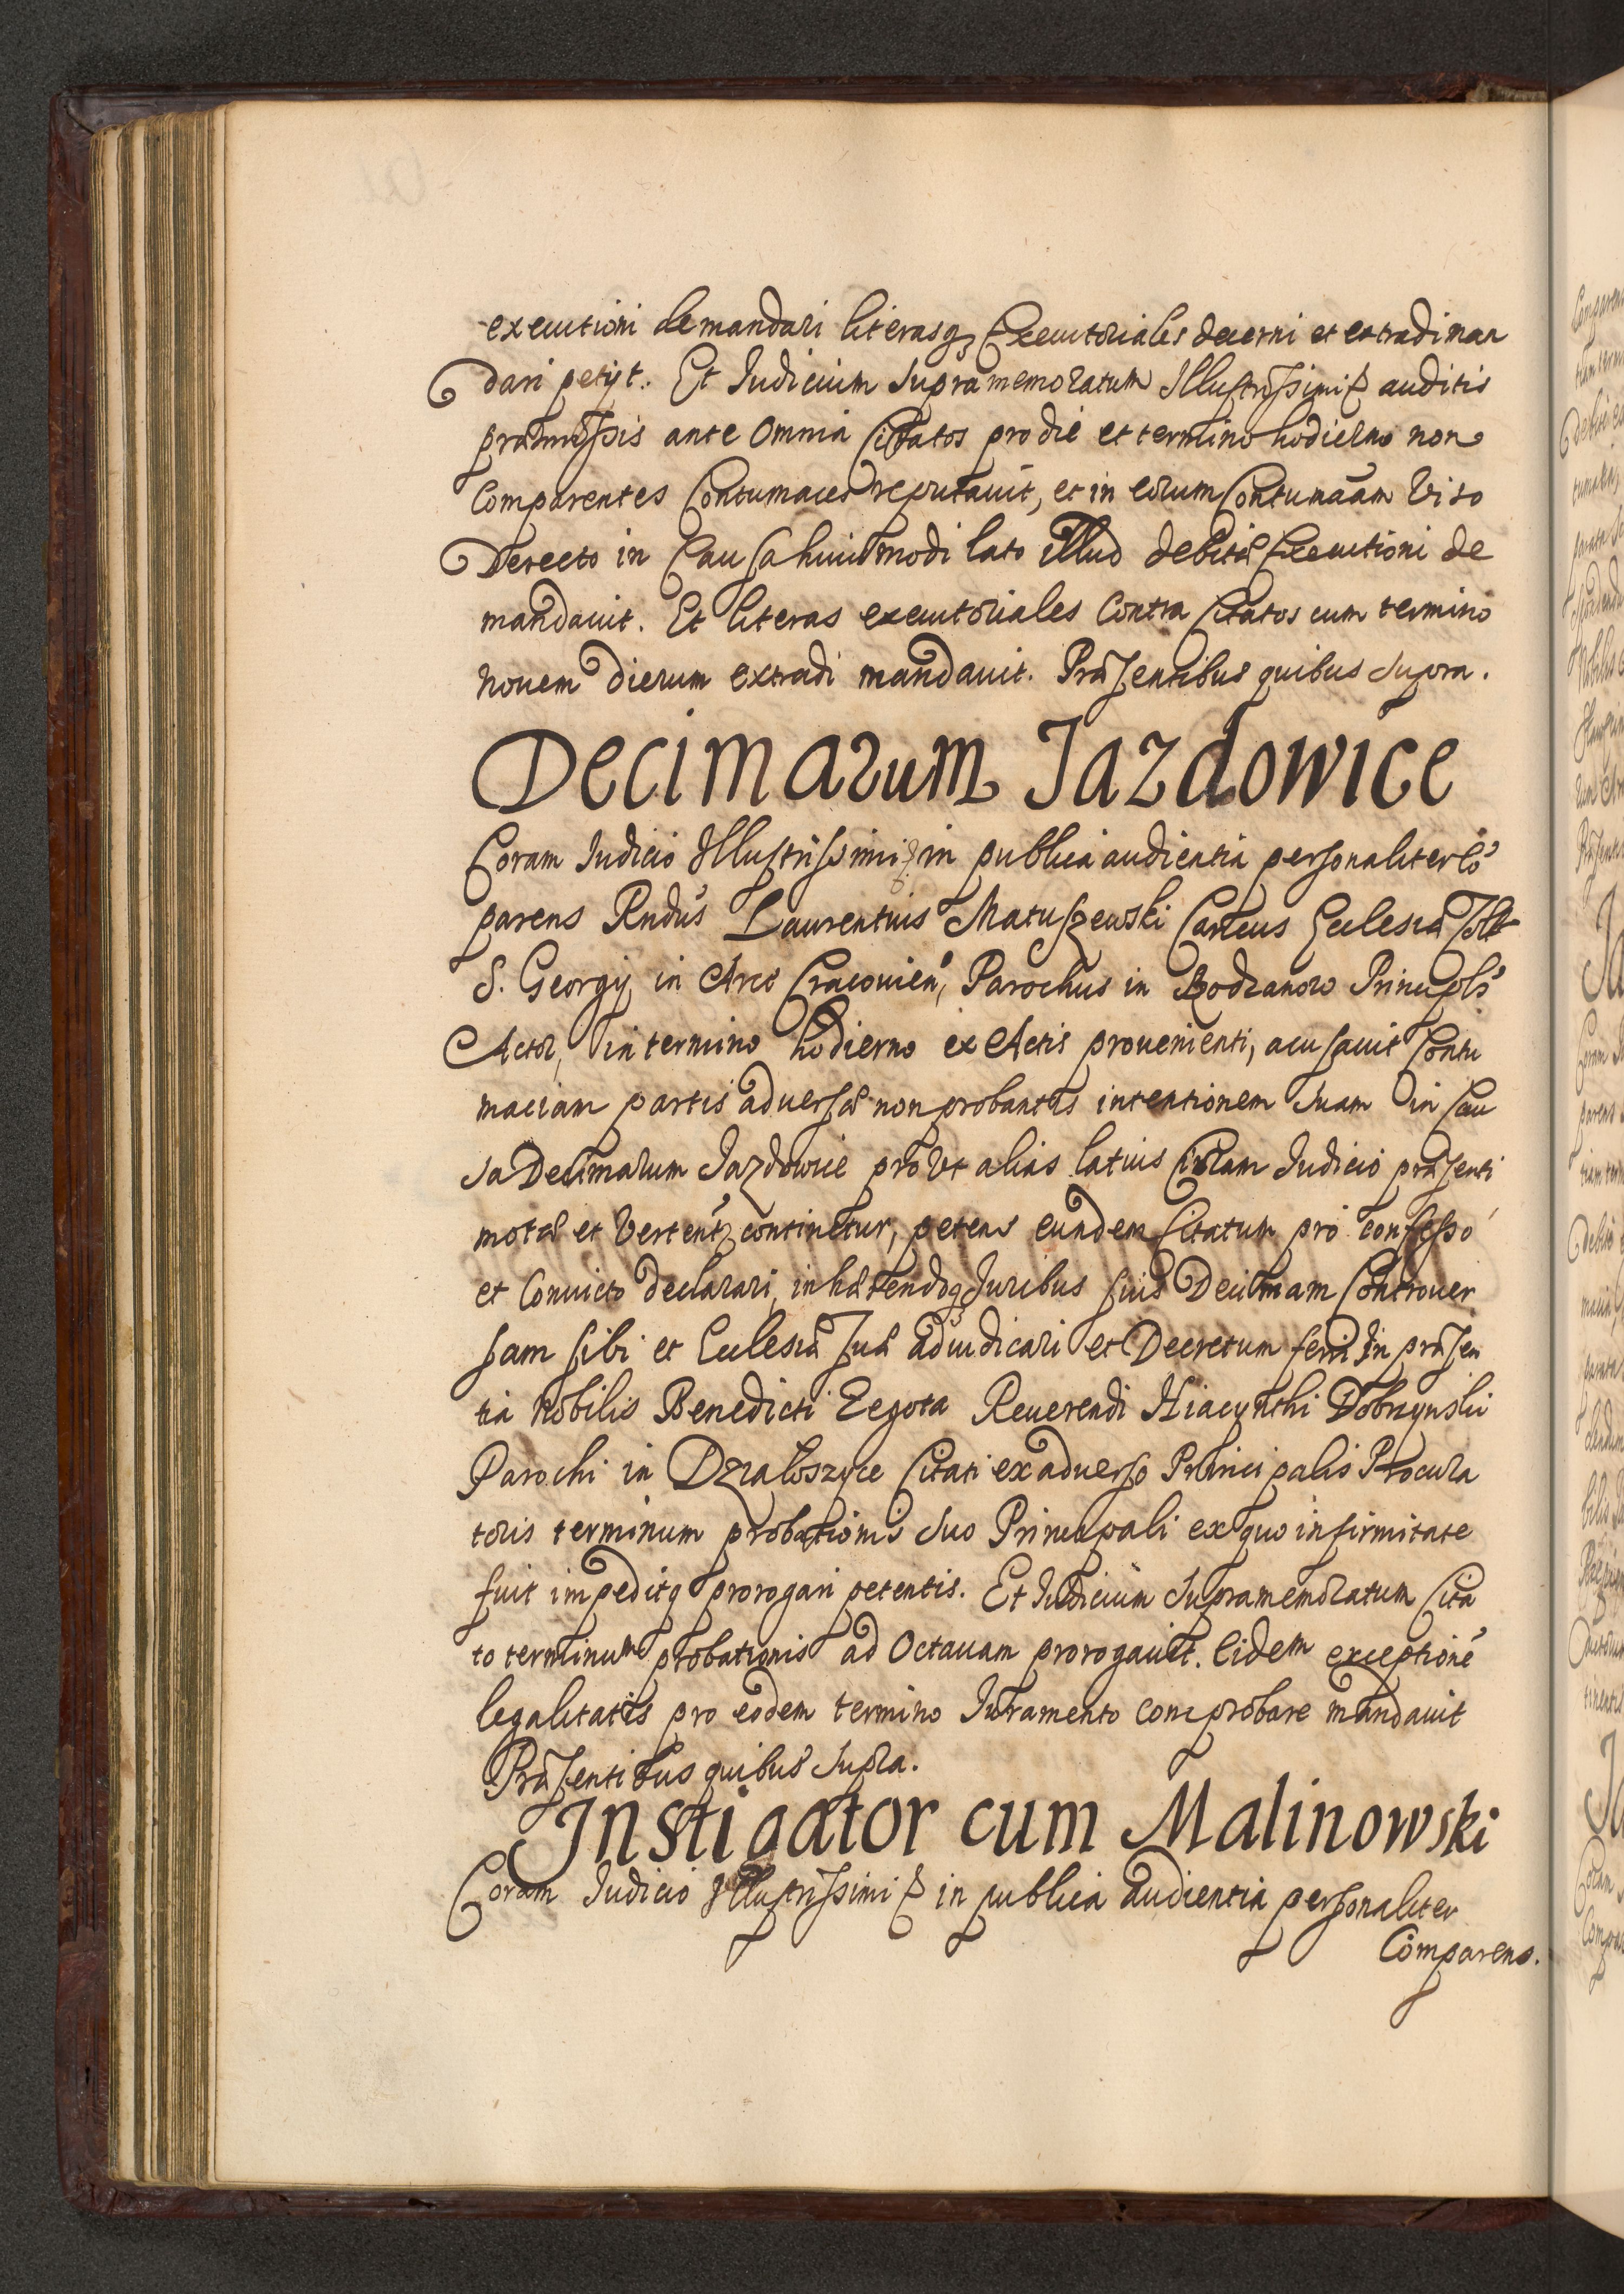 executioni demandari literasq₃ Executoriales decerni et extradi man
dari petijt. Et Judicium supramemoratum Illustrissimi auditis
præmissis ante omnia Citatos pro die et termino hodierno non
Comparentes Contumaces reputauit, et in eorum Contumaciam Viso
Decreto in Causa huiusmodi lato illud debitæ Executioni de
mandauit. Et literas executoriales Contra Citatos cum termino
nouem dierum extradi mandauit. Præsentibus quibus supra.
Decimarum Jazdowice
Coram Judicio Illustrissimi in publica audientia personaliter Cō
parens Rndus Laurentius Matuszewski Cancus Ecclesiæ Coll
S. Georgij in Arce Cracouien, Parochus in Bodzanow Principls
Actor, in termino hodierno ex Actis prouenienti, acusauit Contu
maciam partis aduersæ non probantis intentionem suam in Cau
sa Decimarum Jazdowice prout alias latius Coram Judicio præsenti
motæ et Verten continetur, petens eundem Citatum pro confesso
et Conuicto declarari, inhærendoq₃ Juribus suis Decimam Controuer
sam sibi et Ecclesiæ suæ adiudicari et Decretum ferri In præsen
tia Nobilis Benedicti Zegota Reuerendi Hiacynthi Dobrzynski
Parochi in Dzialoszyce Citati ex aduerso Principalis Procura
toris terminum probationis suo Principali ex quo infirmitate
fuit impeditq prorogari petentis. Et Judicium supramemoratum Cita
to terminum probationis ad Octauam prorogauit. Eidem exceptionē
legalitatis pro eodem termino Juramento comprobare mandauit
Præsentibus quibus supra.
Instigator cum Malinowski
Coram Judicio Illustrissimi in publica audientia personaliter
Comparens.